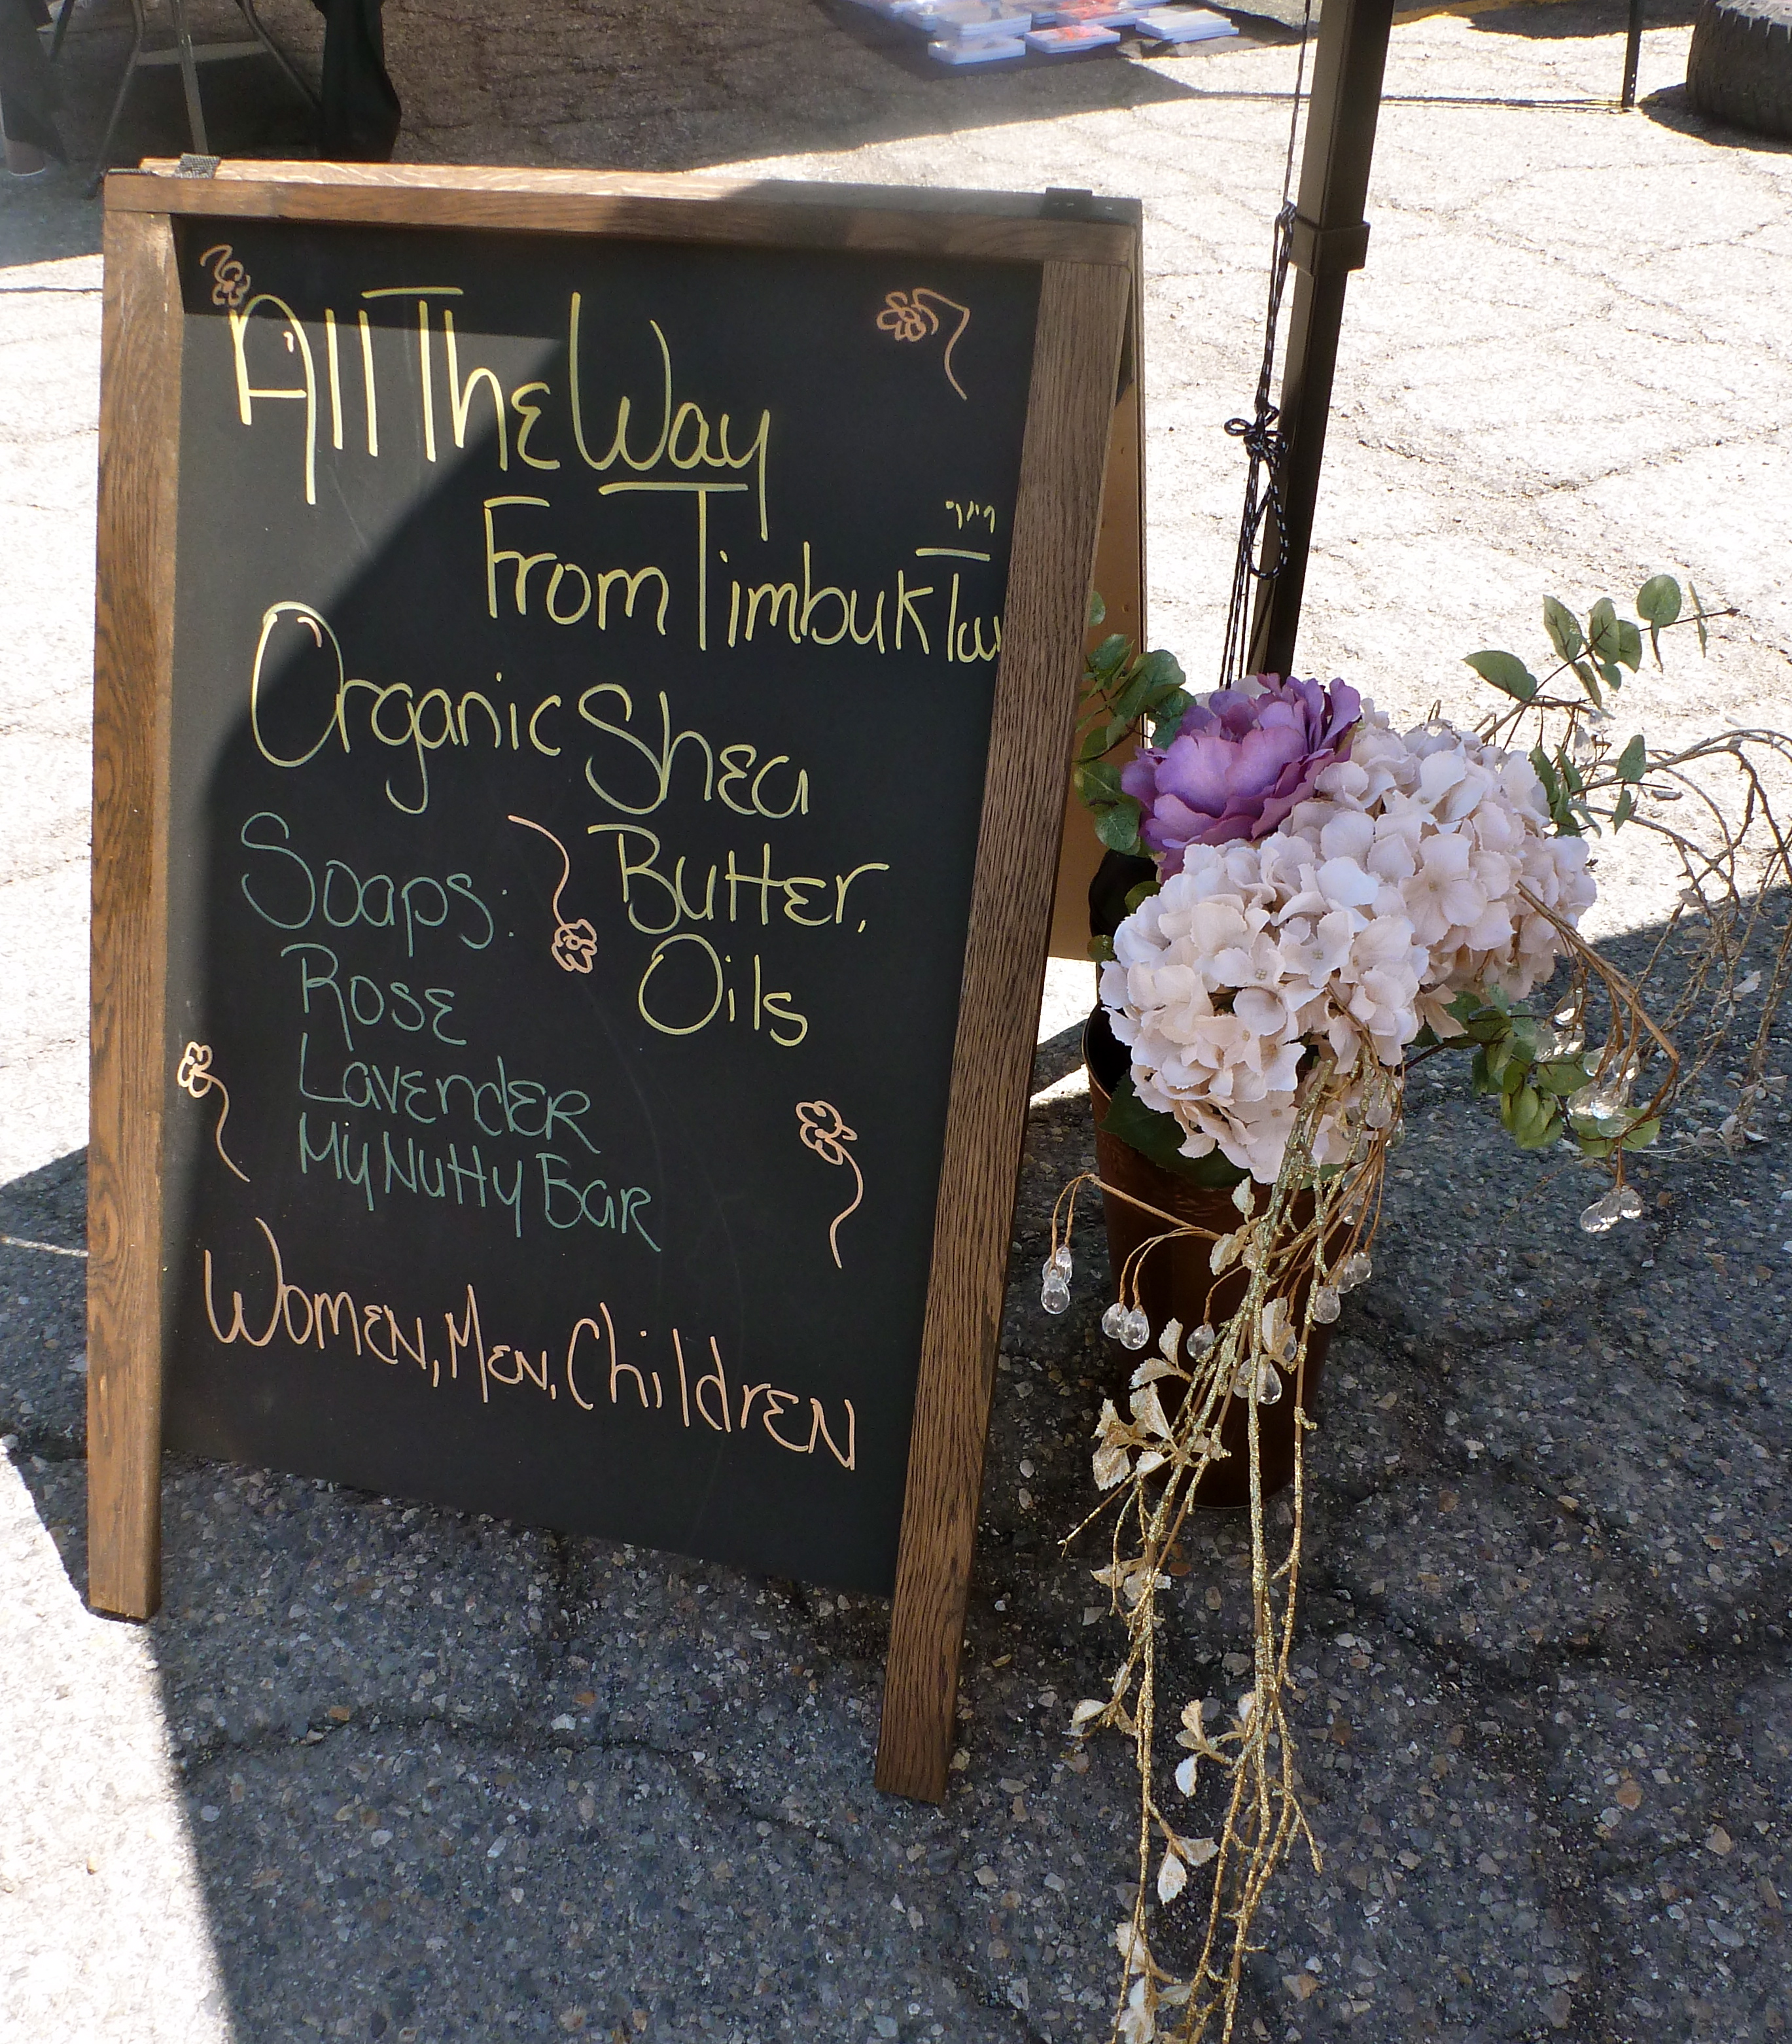 All The Way
From Timbuk Tuu
Organic Shea
Butter,
Oils
Soaps:
Rose
Lavender
My Nutty Bar
Women, Men, Children